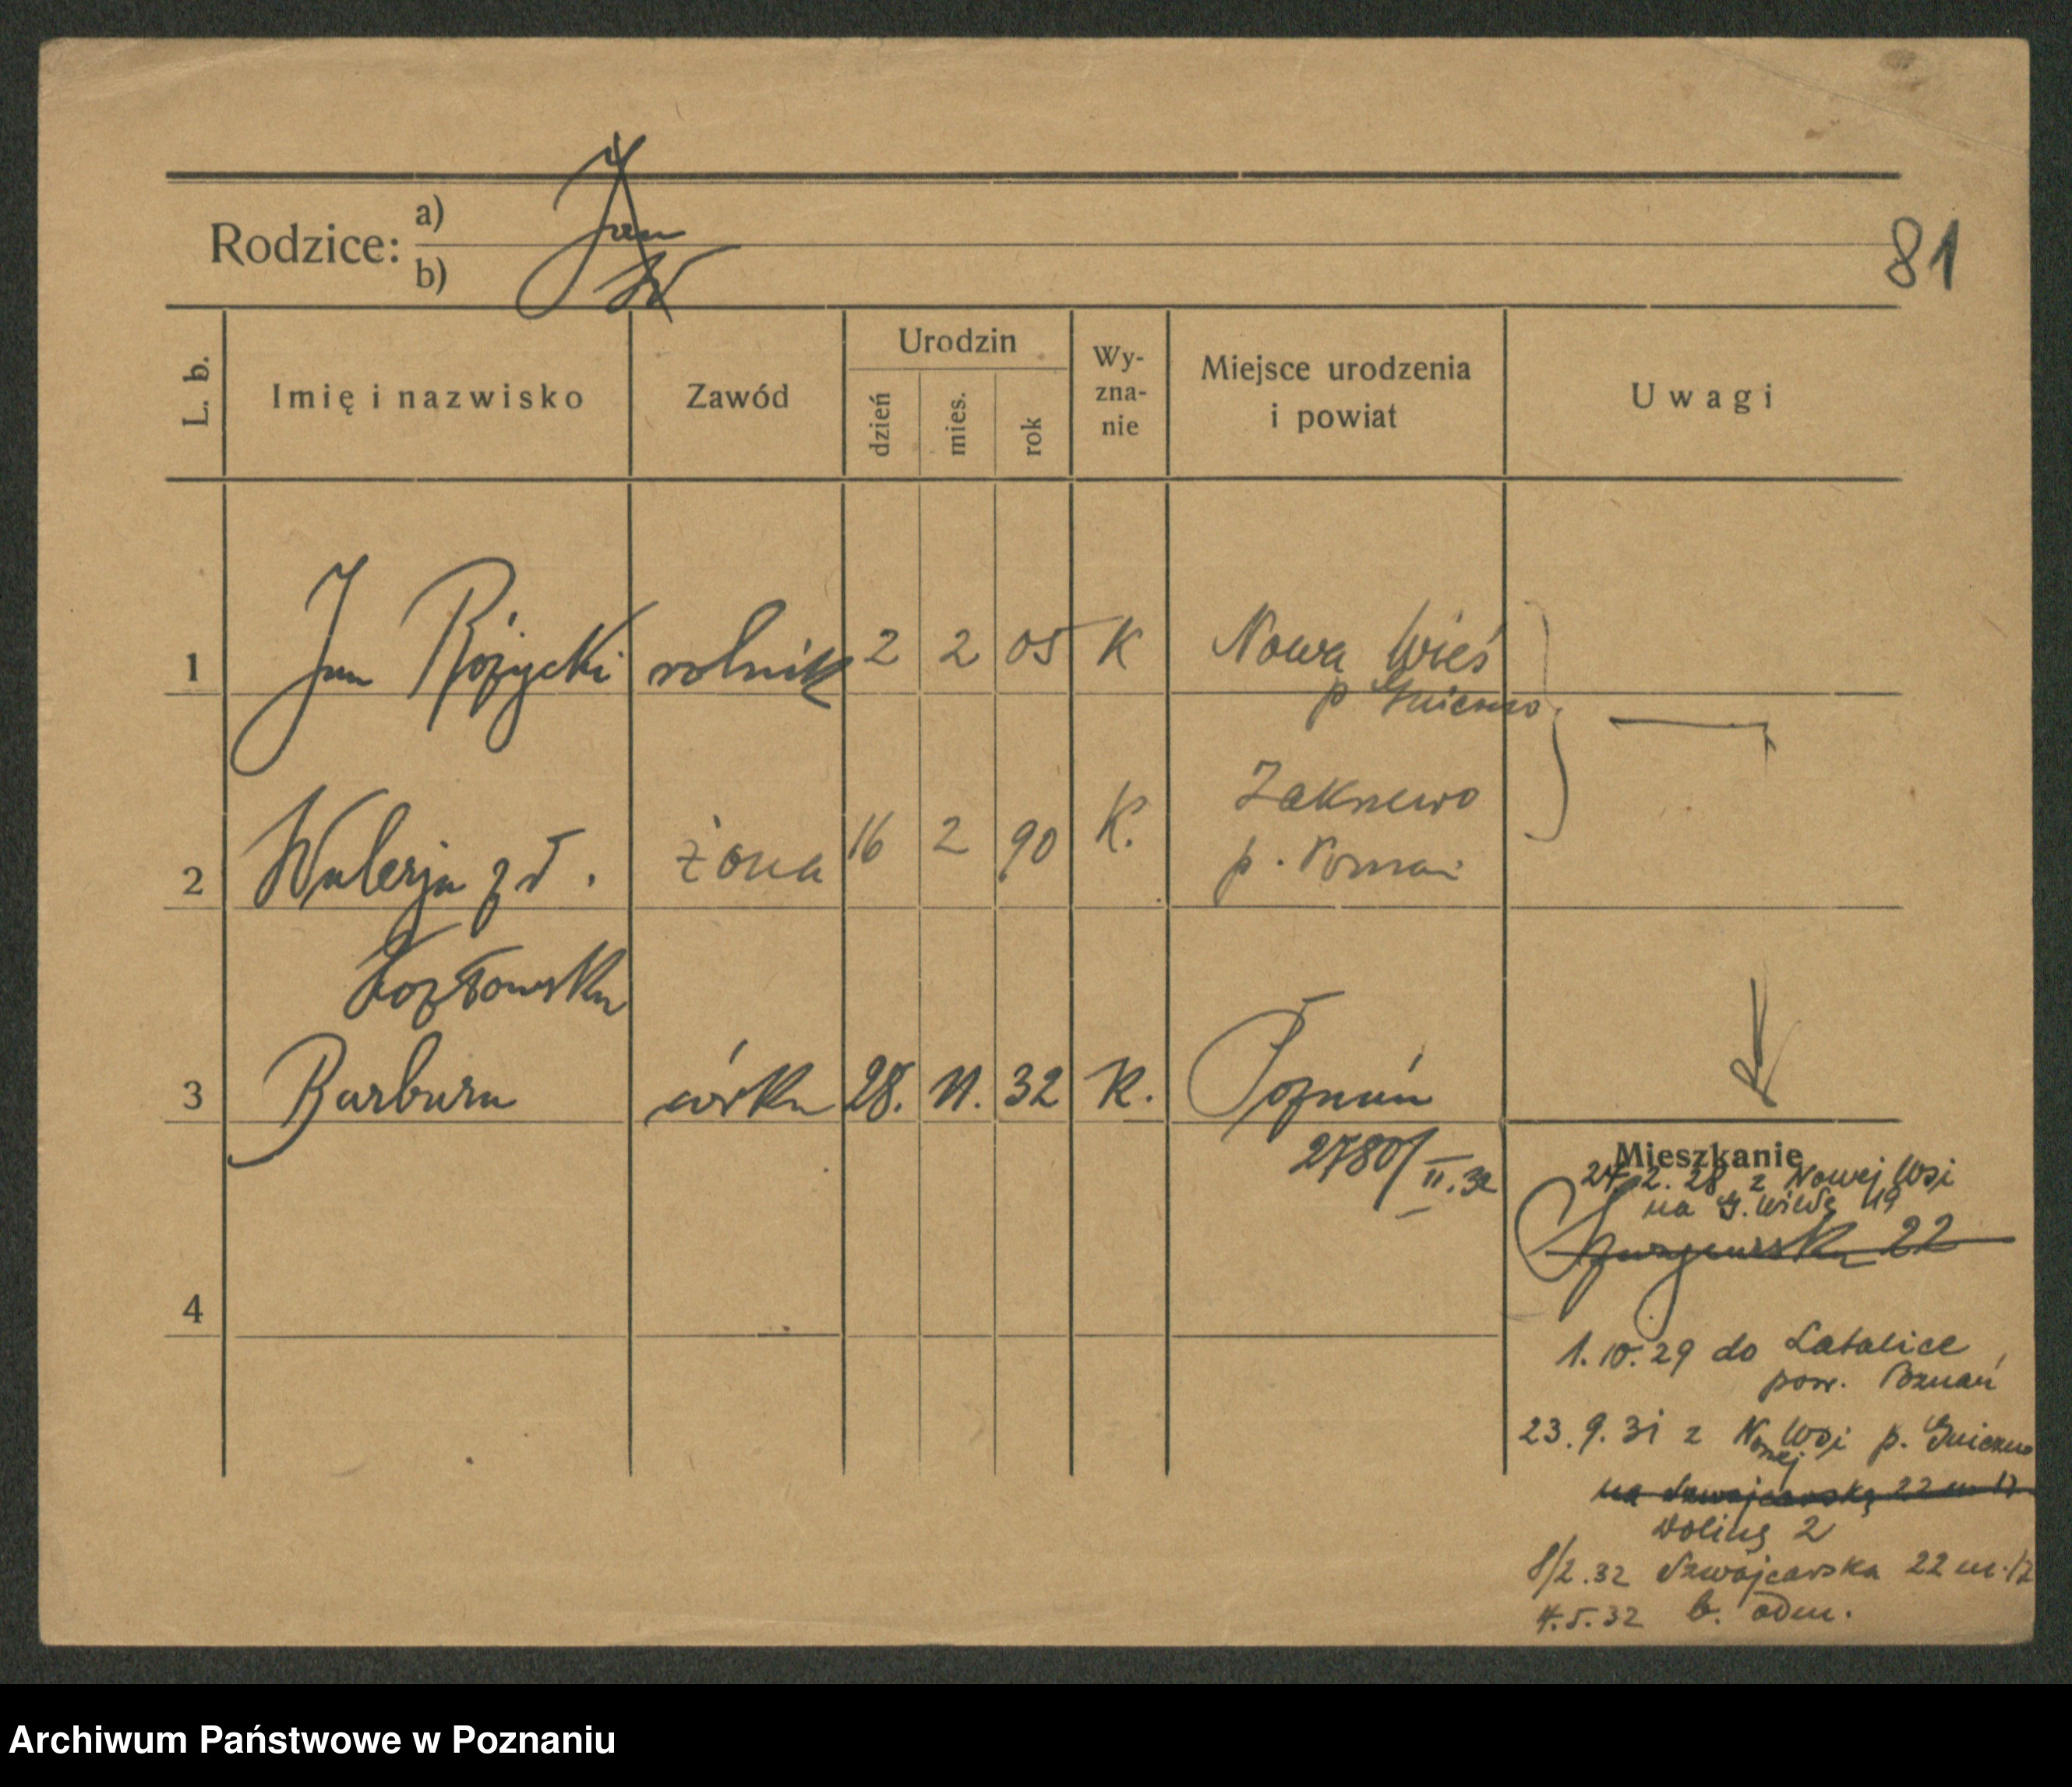 Rodzice: a) Jan
b)
81
L. b.
Imię i nazwisko
Zawód
Urodzin
dzień
mies.
rok
Wy-
zna-
nie
Miejsce urodzenia
i powiat
Uwagi
1 Jan Różycki rolnik 2 2 05 K Nowa Wieś
p Gniezno
2 Walerja z d. żona 16 2 90 K.
p. Poznań
Kozłowska
3 Barbara córka 28. II. 32 K. Poznań
2780/II.32
Mieszkanie
24.2.28 z Nowej Wsi
na G. Wildę 119
Szwajcarska 22
4
1.10.29 do Latalice
pow. Poznań
23.9.31 z Nowej Wsi p. Gniezno
na Szwajcarską 22 m 17
Dolinę 2
8/2.32 Szwajcarska 22 m. 17
4.5.32 b. odm.
Archiwum Państwowe w Poznaniu